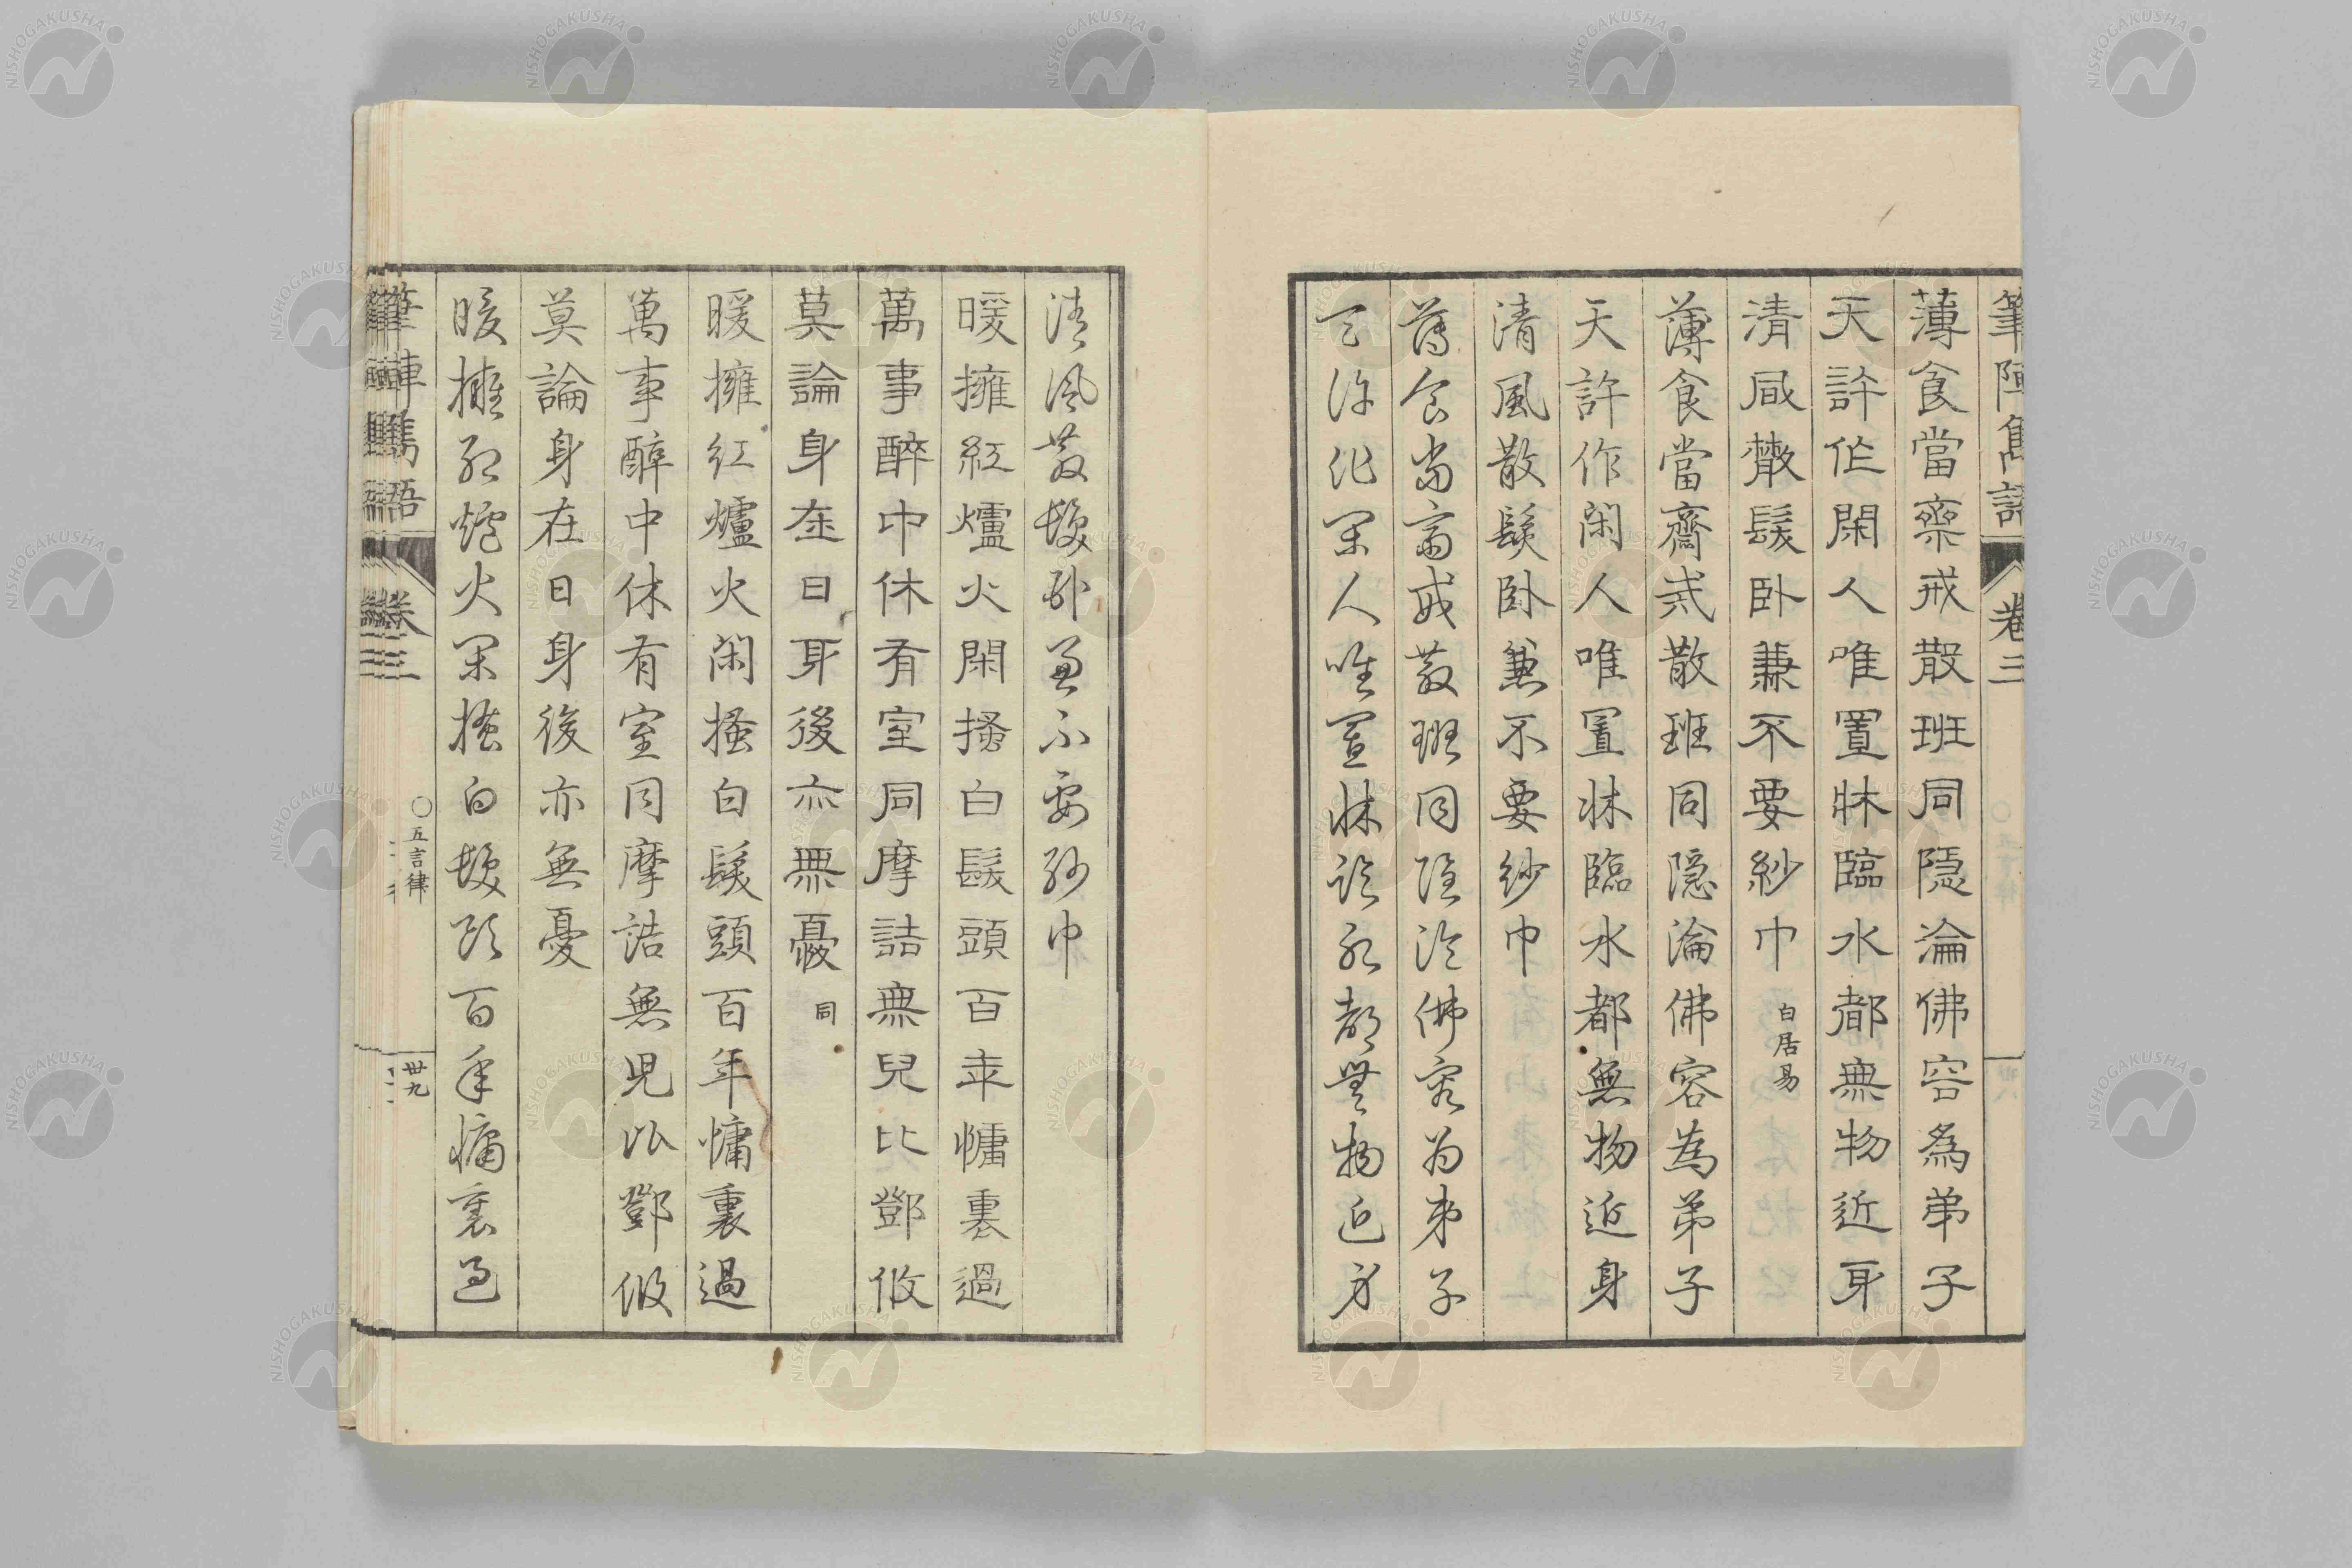 筆陣雋語 卷三
薄食當齊戒散班同隱淪佛容為弟子
天許作閑人唯置牀臨水都無物近身
清風散髮臥兼不要紗巾 白居易
薄食當齋戒散班同隱淪佛容為弟子
天許作閑人唯置牀臨水都無物近身
清風散髮臥兼不要紗巾
薄食當齋戒散班同隱淪佛容為弟子
天許作閑人唯置牀臨水都無物近身
清風散髮臥兼不要紗巾
暖擁紅爐火閑搔白髮頭百年慵裏過
萬事醉中休有室同摩詰無兒比鄧攸
莫論身在日身後亦無憂 同
暖擁紅爐火閑搔白髮頭百年慵裏過
萬事醉中休有室同摩詰無兒比鄧攸
莫論身在日身後亦無憂
暖擁紅爐火閑搔白髮頭百年慵裏過
筆陣雋語 卷三 〇五言律 卅九
NISHOGAKUSHA